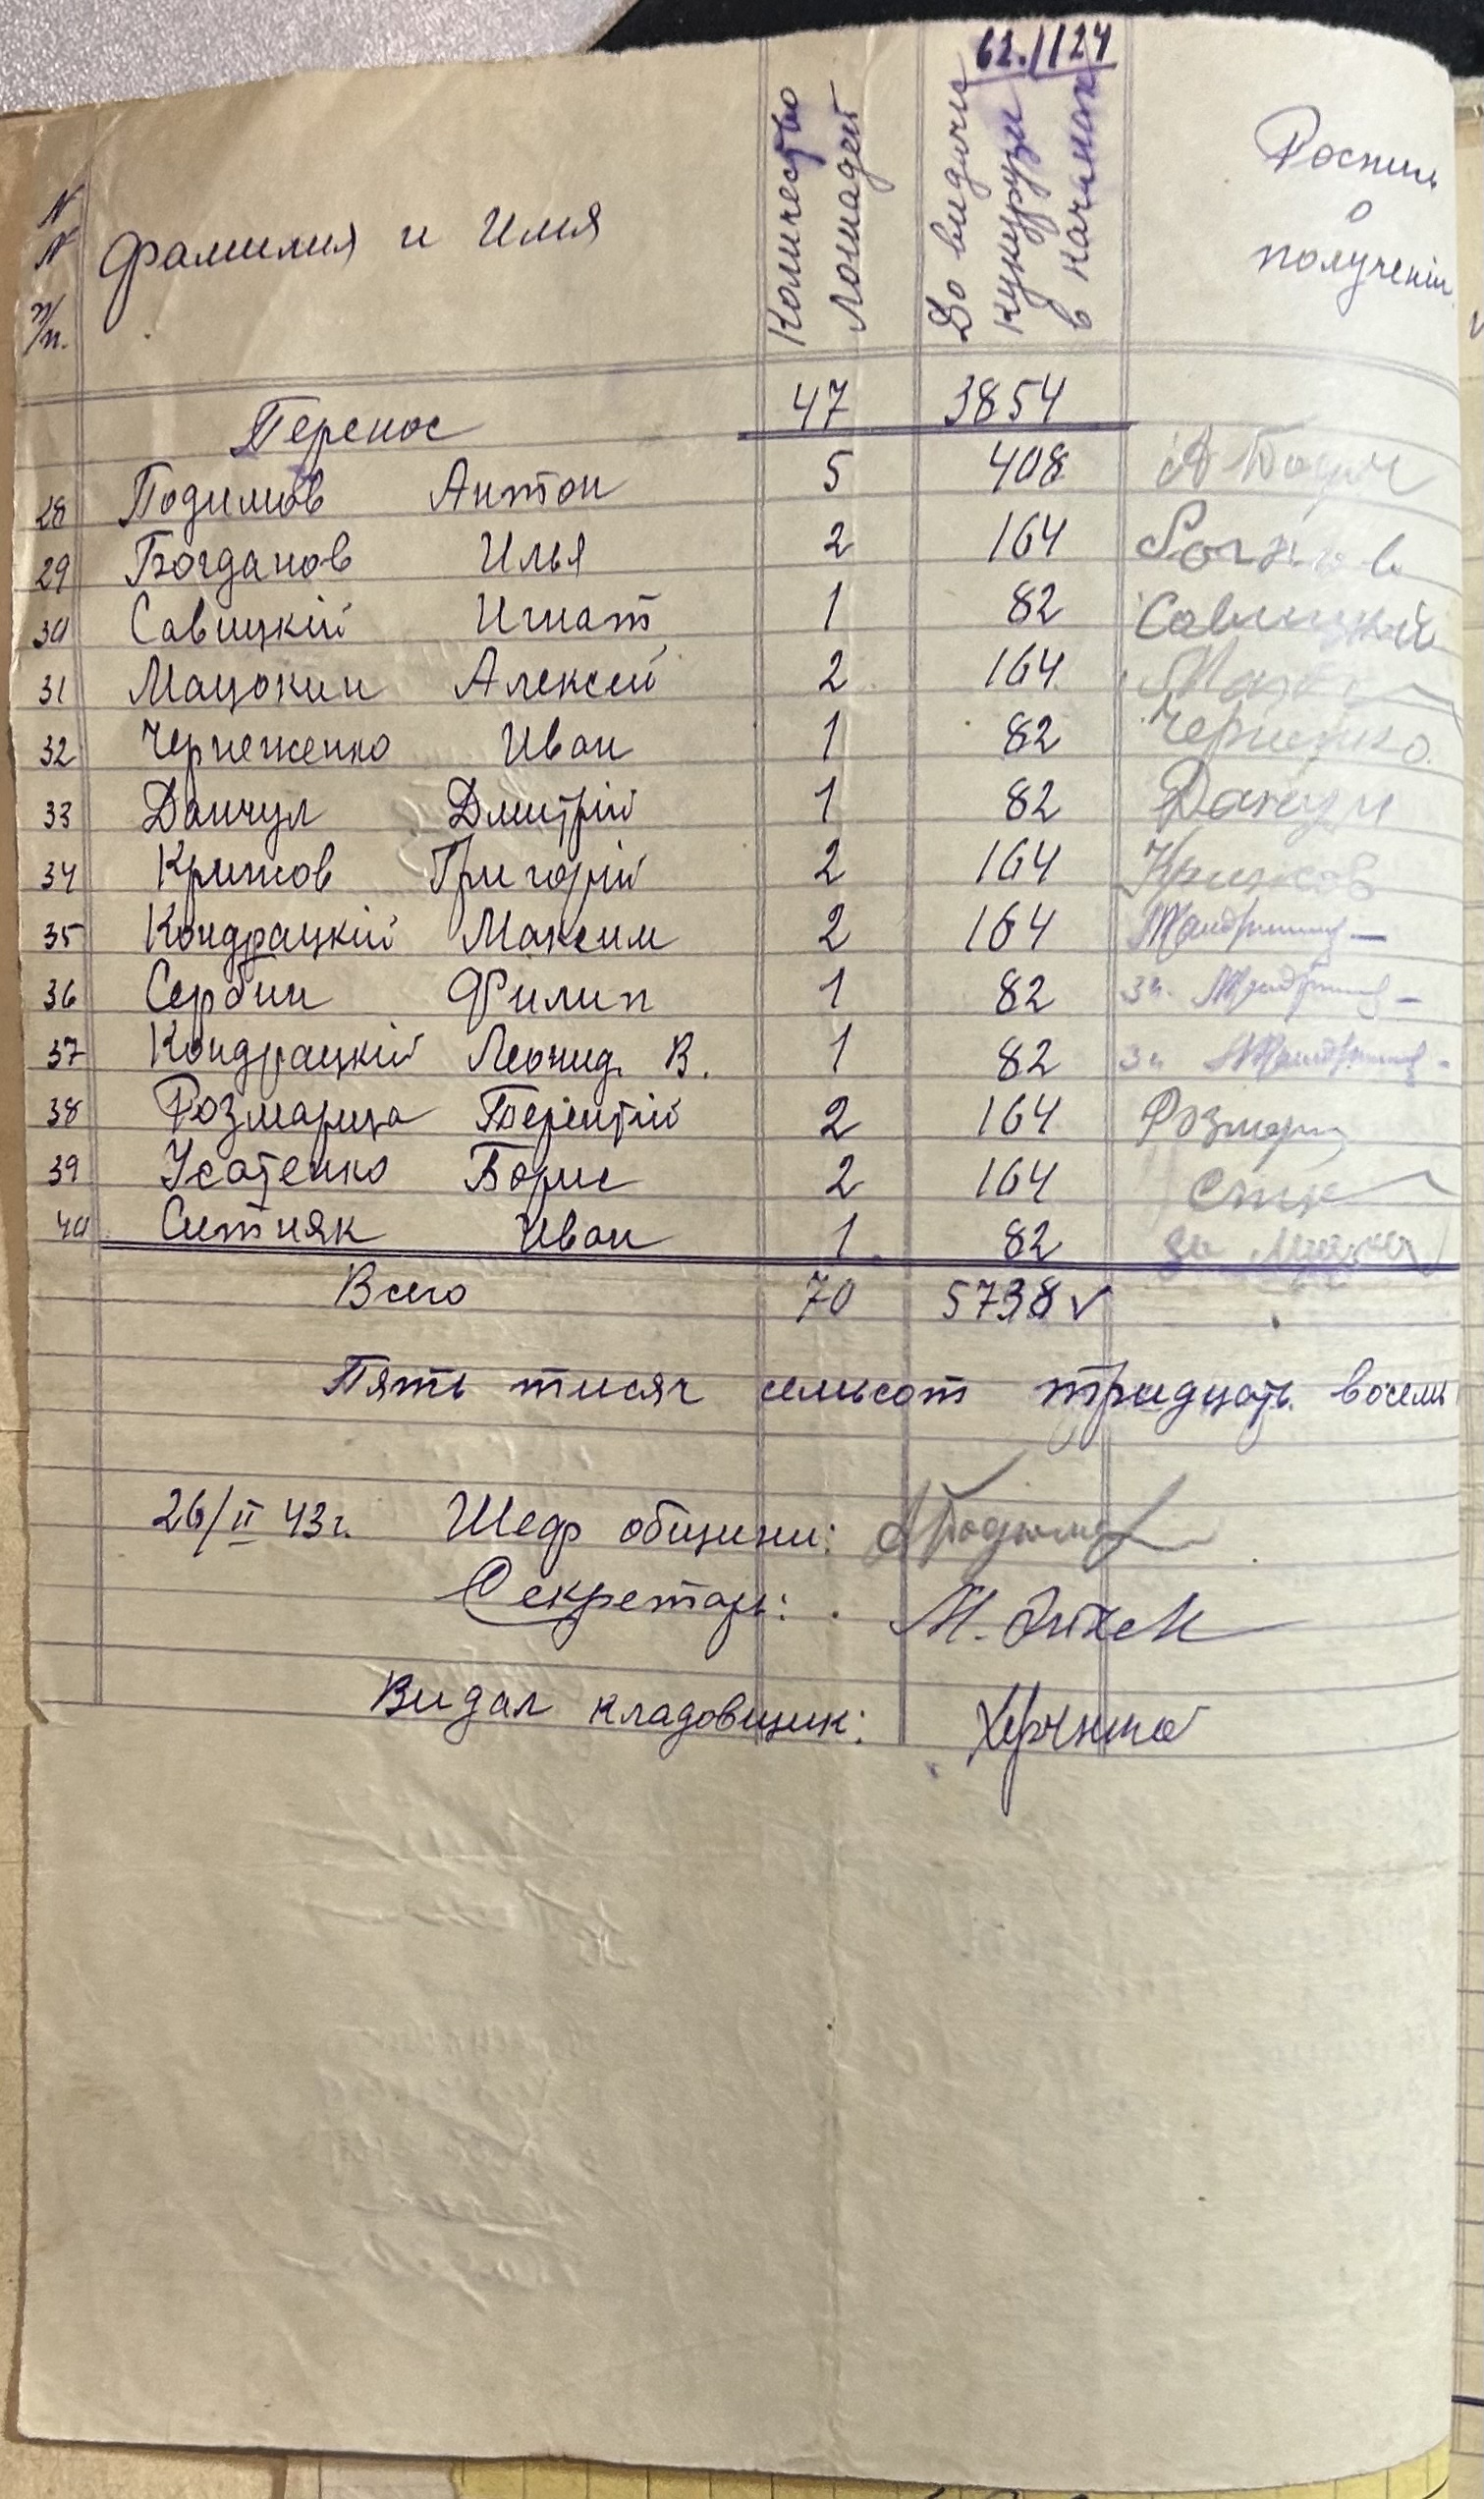 62. 1124
N N п/п. Фамилия и Имя Количество лошадей До видачи кукурузи в качанах Роспись о полученіи
Перенос 47 3854
28 Подимов Антон 5 408
29 Богданов Илья 2 164
30 Савицкій Игнат 1 82 Савицкий
31 Мацокин Алексей 2 164
32 Черноженко Иван 1 82
33 Данчул Дмитрій 1 82 Данчул
34 Крижов Григорій 2 164 Крижов
35 Кондрацкій Максим 2 164
36 Сербин Филип 1 82 за
37 Кондрацкій Леонид В. 1 82 за
38 Розмарица Терентій 2 164 Розмариц
39 Усатенко Борис 2 164
40 Ситняк Иван 1 82 за
Всего 70 5738 √
Пять тисяч семьсот тридцать восемь
26/II 43 г. Шеф общини:
Секретарь: М.
Видал кладовщик: